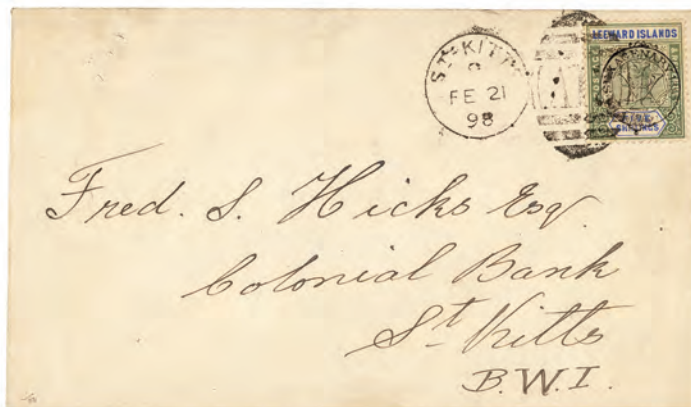 ST. KITTS
C
FE 21
98
LEEWARD ISLANDS
SHILLINGS
Fred. S. Hicks Esq.
Colonial Bank
St. Kitts
B.W.I.